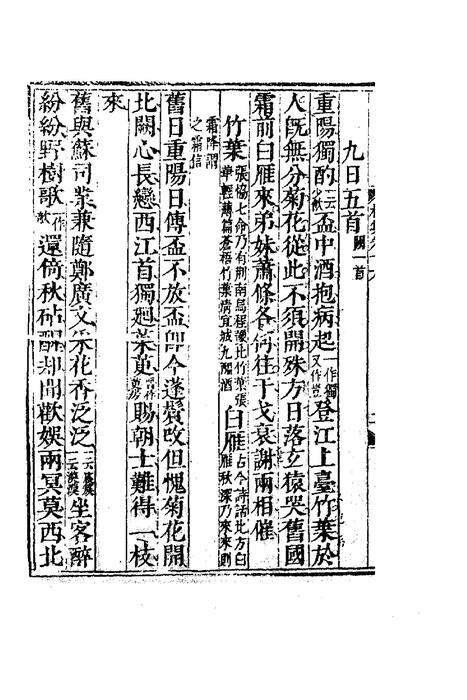 九日五首闕一首
重陽獨酌一云少飲盃中酒抱病起一作獨又作豈登江上臺竹葉於
人既無分菊花從此不須開殊方日落玄猿哭舊國
霜前白雁來弟妹蕭條各何往干戈衰謝兩相催
竹葉張協七命乃有荊南烏程豫北竹葉張華輕薄篇蒼梧竹葉清宜城九醞酒白雁古今詩話北方白雁秋深乃來來則
霜降謂之霜信
舊日重陽日傳盃不放盃即今蓬鬢改但愧菊花開
北闕心長戀西江首獨廻茱萸賜朝士難得一枝
來
舊與蘇司業兼隨鄭廣文采花香泛泛坐客醉
紛紛野樹歌一作欹還倚秋砧醒却聞歡娛兩冥莫西北